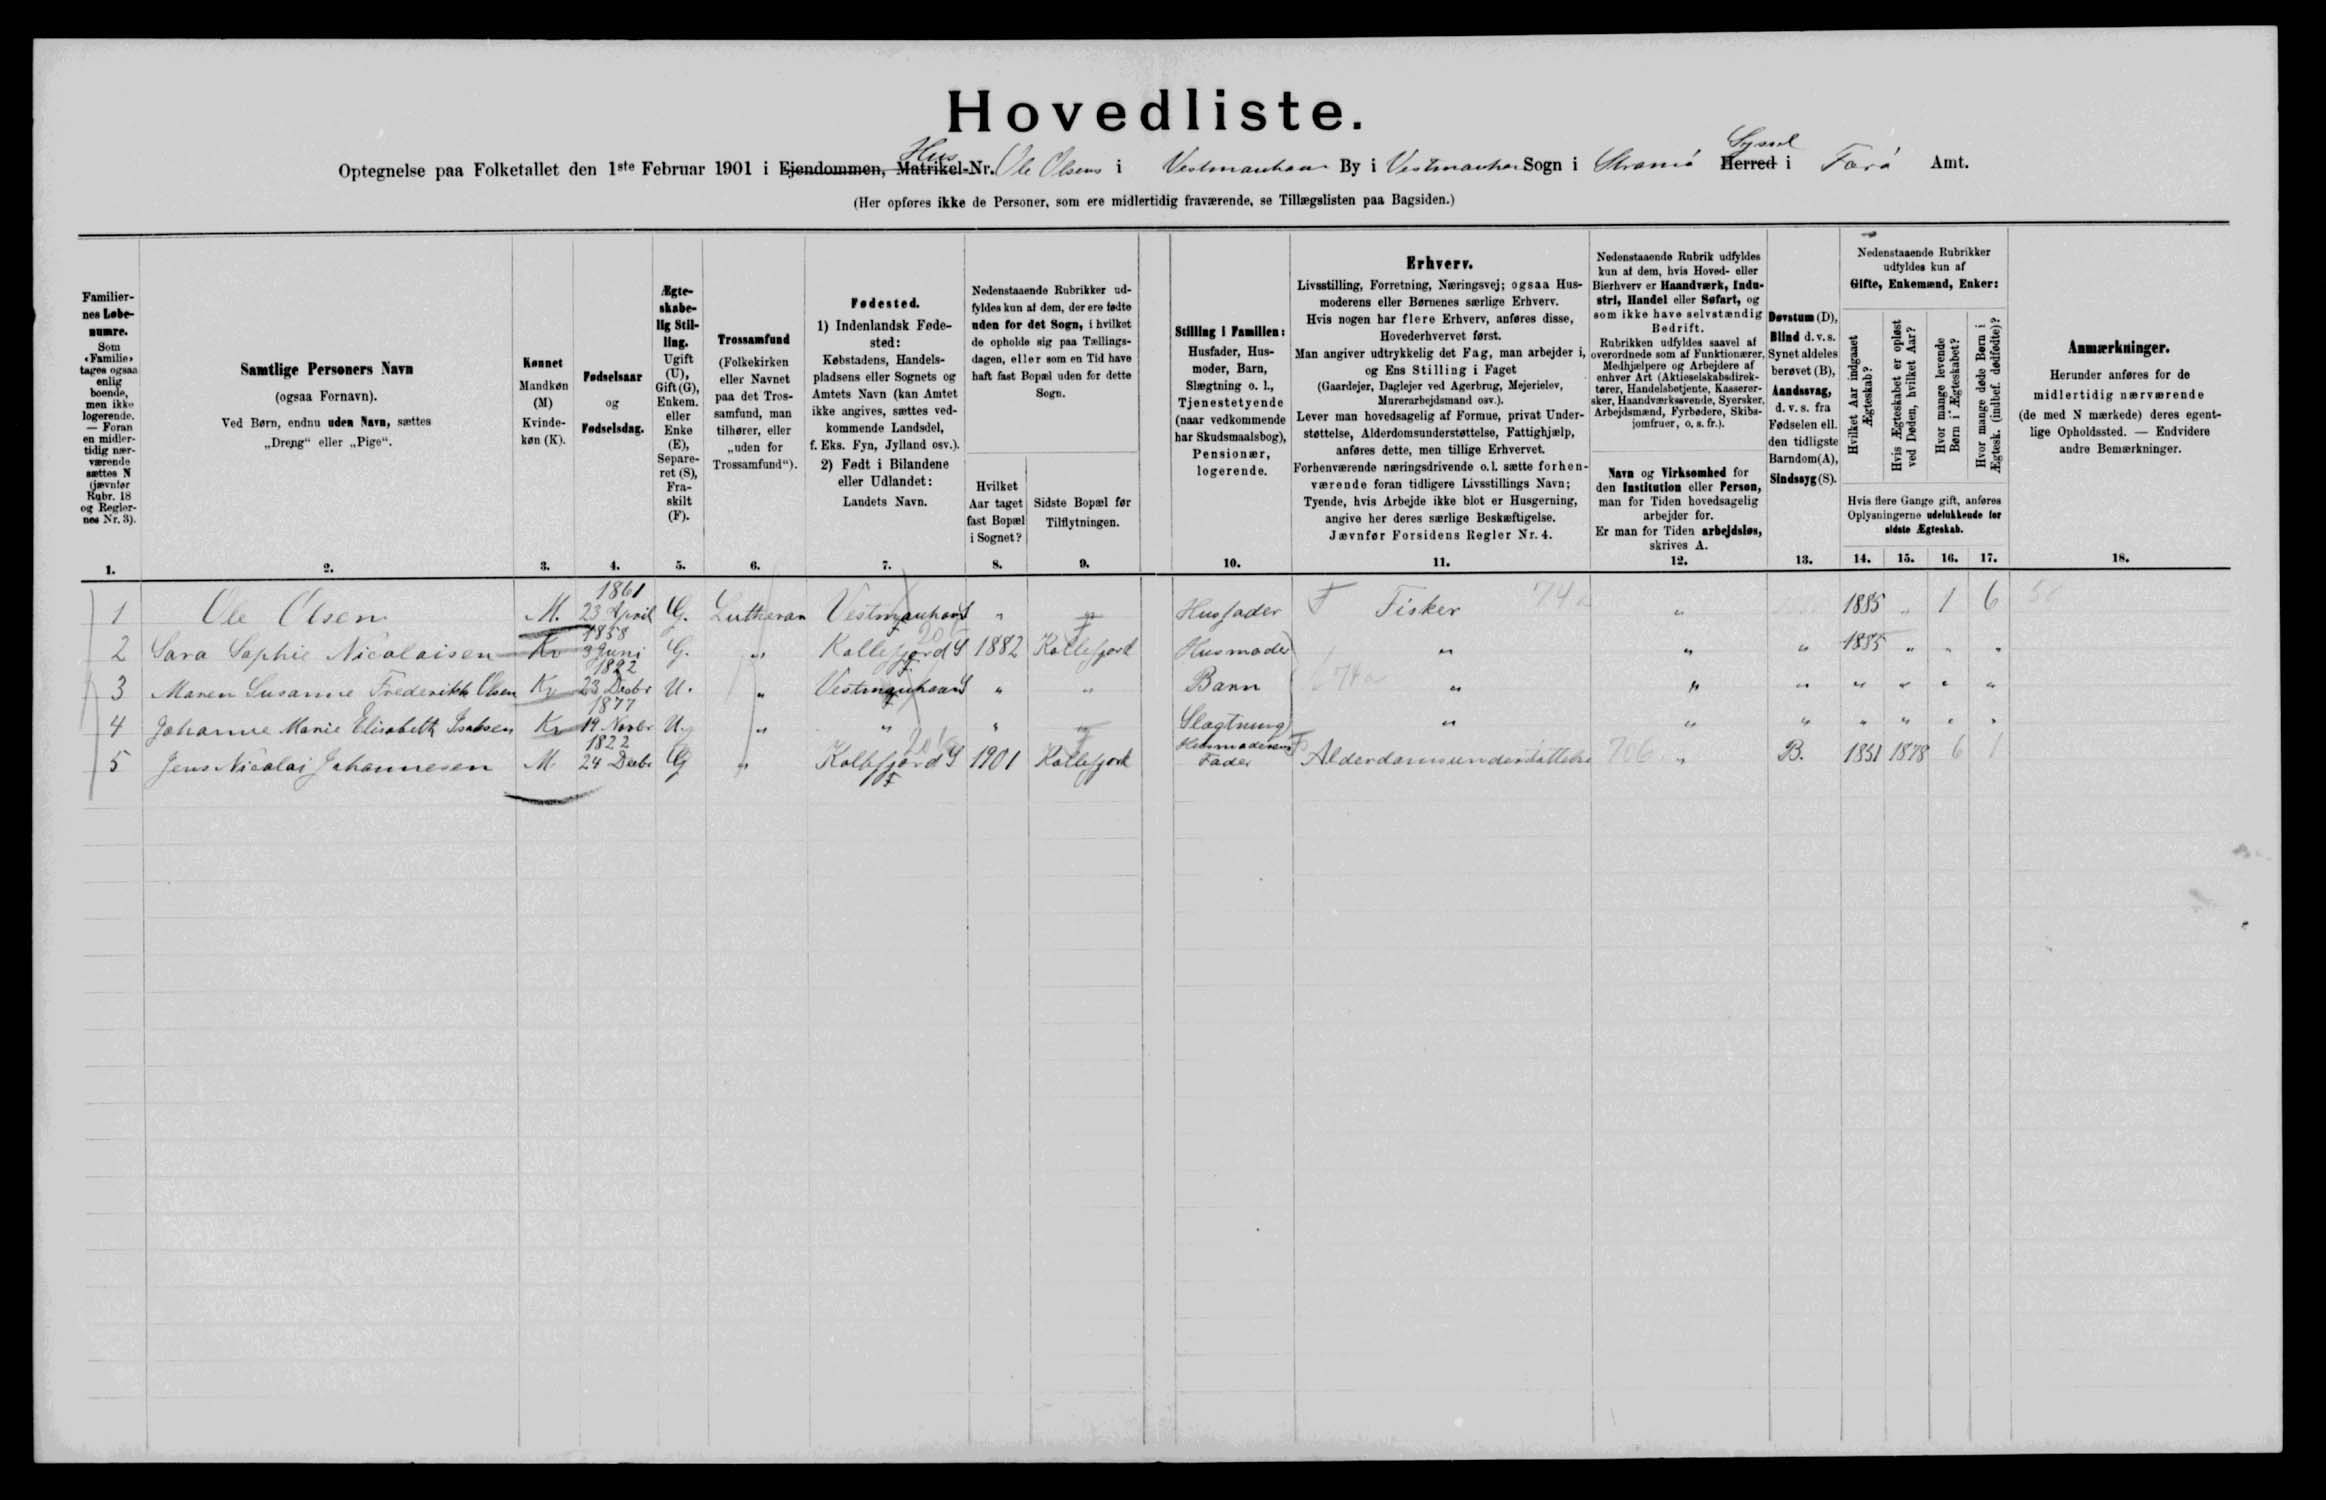 Hovedliste.
Optegnelse paa Folketallet den 1ste Februar 1901 i Ejendommen, Matrikel-Nr. Hus Ole Olsens i Vestmanhavn By i Vestmanhavn Sogn i Strømø Herred Syssel i Færø Amt.
(Her opføres ikke de Personer, som ere midlertidig fraværende, se Tillægslisten paa Bagsiden.)
Familiernes Løbenumre.
Som «Familie» tages ogsaa enlig boende, men ikke logerende. — Foran en midlertidig nærværende sættes N (jævnfør Rubr. 18 og Reglernes Nr. 3).
Samtlige Personers Navn
(ogsaa Fornavn).
Ved Børn, endnu uden Navn, sættes
„Dreng“ eller „Pige“.
Kønnet
Mandkøn (M)
Kvindekøn (K).
Fødselsaar
og
Fødselsdag.
Ægteskabelig Stilling.
Ugift (U), Gift (G), Enkem. eller Enke (E), Separeret (S), Fraskilt (F).
Trossamfund
(Folkekirken eller Navnet paa det Trossamfund, man tilhører, eller „uden for Trossamfund“).
Fødested.
1) Indenlandsk Fødested:
Købstadens, Handelspladsens eller Sognets og Amtets Navn (kan Amtet ikke angives, sættes vedkommende Landsdel, f. Eks. Fyn, Jylland osv.).
2) Født i Bilandene eller Udlandet:
Landets Navn.
Nedenstaaende Rubrikker udfyldes kun af dem, der ere fødte uden for det Sogn, i hvilket de opholde sig paa Tællingsdagen, eller som en Tid have haft fast Bopæl uden for dette Sogn.
Hvilket Aar taget fast Bopæl i Sognet?
Sidste Bopæl før Tilflytningen.
Stilling i Familien:
Husfader, Husmoder, Barn, Slægtning o. l., Tjenestetyende (naar vedkommende har Skudsmaalsbog), Pensionær, logerende.
Erhverv.
Livsstilling, Forretning, Næringsvej; ogsaa Husmoderens eller Børnenes særlige Erhverv.
Hvis nogen har flere Erhverv, anføres disse, Hovederhvervet først.
Man angiver udtrykkelig det Fag, man arbejder i, og Ens Stilling i Faget
(Gaardejer, Daglejer ved Agerbrug, Mejerielev, Murerarbejdsmand osv.).
Lever man hovedsagelig af Formue, privat Understøttelse, Alderdomsunderstøttelse, Fattighjælp, anføres dette, men tillige Erhvervet.
Forhenværende næringsdrivende o. l. sætte forhenværende foran tidligere Livsstillings Navn;
Tyende, hvis Arbejde ikke blot er Husgerning, angive her deres særlige Beskæftigelse.
Jævnfør Forsidens Regler Nr. 4.
Nedenstaaende Rubrik udfyldes kun af dem, hvis Hoved- eller Bierhverv er Haandværk, Industri, Handel eller Søfart, og som ikke have selvstændig Bedrift.
Rubrikken udfyldes saavel af overordnede som af Funktionærer, Medhjælpere og Arbejdere af enhver Art (Aktieselskabsdirektører, Handelsbetjente, Kasserersker, Haandværkssvende, Syersker, Arbejdsmænd, Fyrbødere, Skibsjomfruer, o. s. fr.).
Navn og Virksomhed for den Institution eller Person, man for Tiden hovedsagelig arbejder for.
Er man for Tiden arbejdsløs, skrives A.
Døvstum (D), Blind d. v. s. Synet aldeles berøvet (B), Aandssvag, d. v. s. fra Fødselen ell. den tidligste Barndom (A), Sindssyg (S).
Nedenstaaende Rubrikker udfyldes kun af
Gifte, Enkemænd, Enker:
Hvilket Aar indgaaet Ægteskab?
Hvis Ægteskabet er opløst ved Døden, hvilket Aar?
Hvor mange levende Børn i Ægteskabet?
Hvor mange døde Børn i Ægtesk. (indbef. dødfødte)?
Hvis flere Gange gift, anføres Oplysningerne udelukkende for sidste Ægteskab.
Anmærkninger.
Herunder anføres for de midlertidig nærværende (de med N mærkede) deres egentlige Opholdssted. — Endvidere andre Bemærkninger.
1. 2. 3. 4. 5. 6. 7. 8. 9. 10. 11. 12. 13. 14. 15. 16. 17. 18.
1 Ole Olsen M. 1861 23 April G. Lutheran Vestmanhavn S " " Husfader F Fisker 74a " 1885 " 1 6 50
2 Sara Sophie Nicolaisen Kv 1858 3 Juni G. " Kollefjord S 1882 Kollefjord Husmoder " " " 1885 " " "
3 Maren Susanne Frederikke Olsen Kv 1892 23 Decbr U. " Vestmanhavn S " " Barn 74a " " " " " " "
4 Johanne Marie Elisabeth Isaksen Kv 1877 19 Novbr U. " " " " Slægtning " " " " " " "
5 Jens Nicolai Johannesen M. 1822 24 Decbr G " Kollefjord S 1901 Kollefjord Husmoderens Fader Alderdomsunderstøttelse 706 " B. 1851 1878 6 1